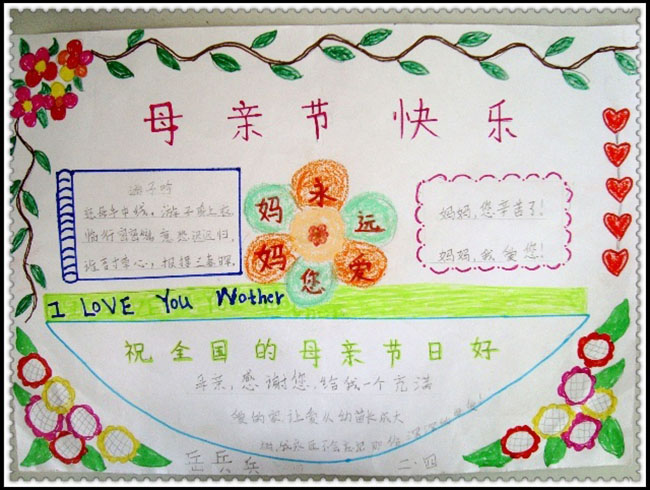 母亲节快乐
游子吟
慈母手中线，游子身上衣
临行密密缝，意恐迟迟归，
谁言寸草心，报得三春晖。
永远爱您妈妈
妈妈，您辛苦了！
妈妈，我爱您！
I LOVE You Mother
祝全国的母亲节日好
母亲，感谢您，给我一个充满
爱的家，让我从幼苗长成大